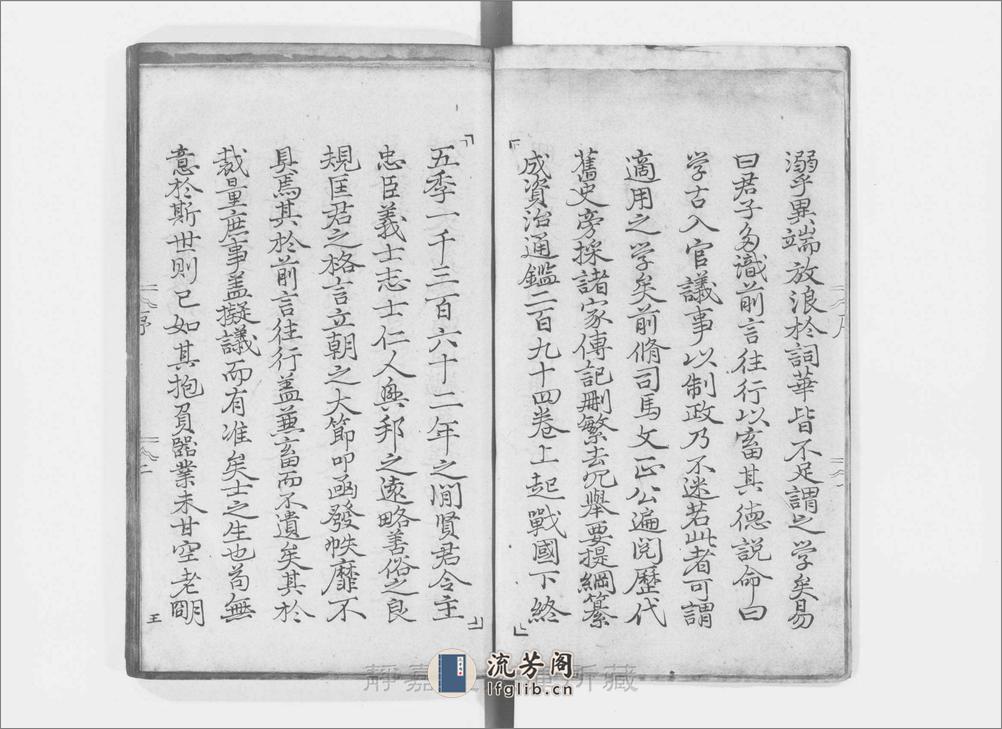 溺乎異端放浪於詞華皆不足謂之学矣易
曰君子多識前言往行以畜其德説命曰
学古入官議事以制政乃不迷若此者可謂
適用之学矣前脩司馬文正公遍閲歷代
舊史旁採諸家傳記刪繁去冗舉要提綱纂
成資治通鑑二百九十四卷上起戰國下終
五季一千三百六十二年之間賢君令主
忠臣義士志士仁人興邦之遠略善俗之良
規匡君之格言立朝之大節叩函發帙靡不
具焉其於前言往行盖兼畜而不遺矣其於
裁量庶事盖擬議而有准矣士之生也苟無
意於斯世則已如其抱負器業未甘空老明
序
王
靜嘉
所藏
流芳阁
lfglib.cn